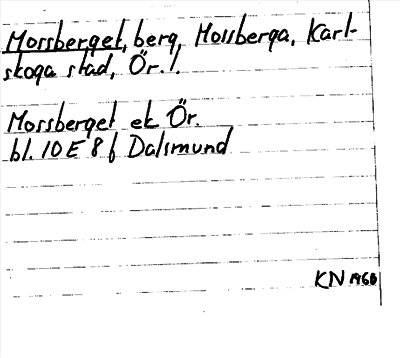 Morsberget, berg, Mossberga, Karl-
skoga stad, Ör.!.
Morsberget ek Ör.
bl. 10 E 8 f Dalsmund
KN 1966